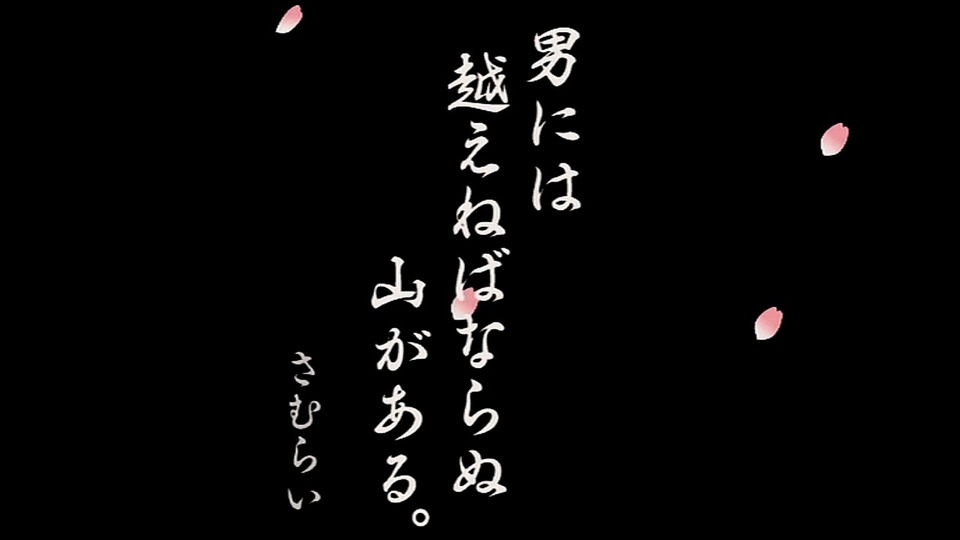 男には
越えねばならぬ
山がある。
さむらい